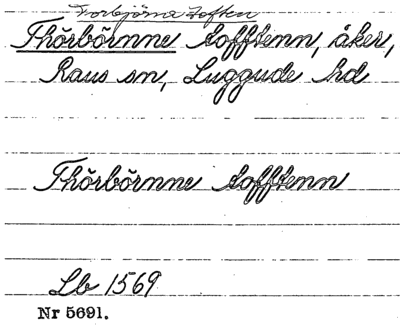 Torbjörna Toften
Thörbörnne tofftenn, åker,
Raus sn, Luggude hd
Thörbörnne tofftenn
Lb 1569
Nr 5691.